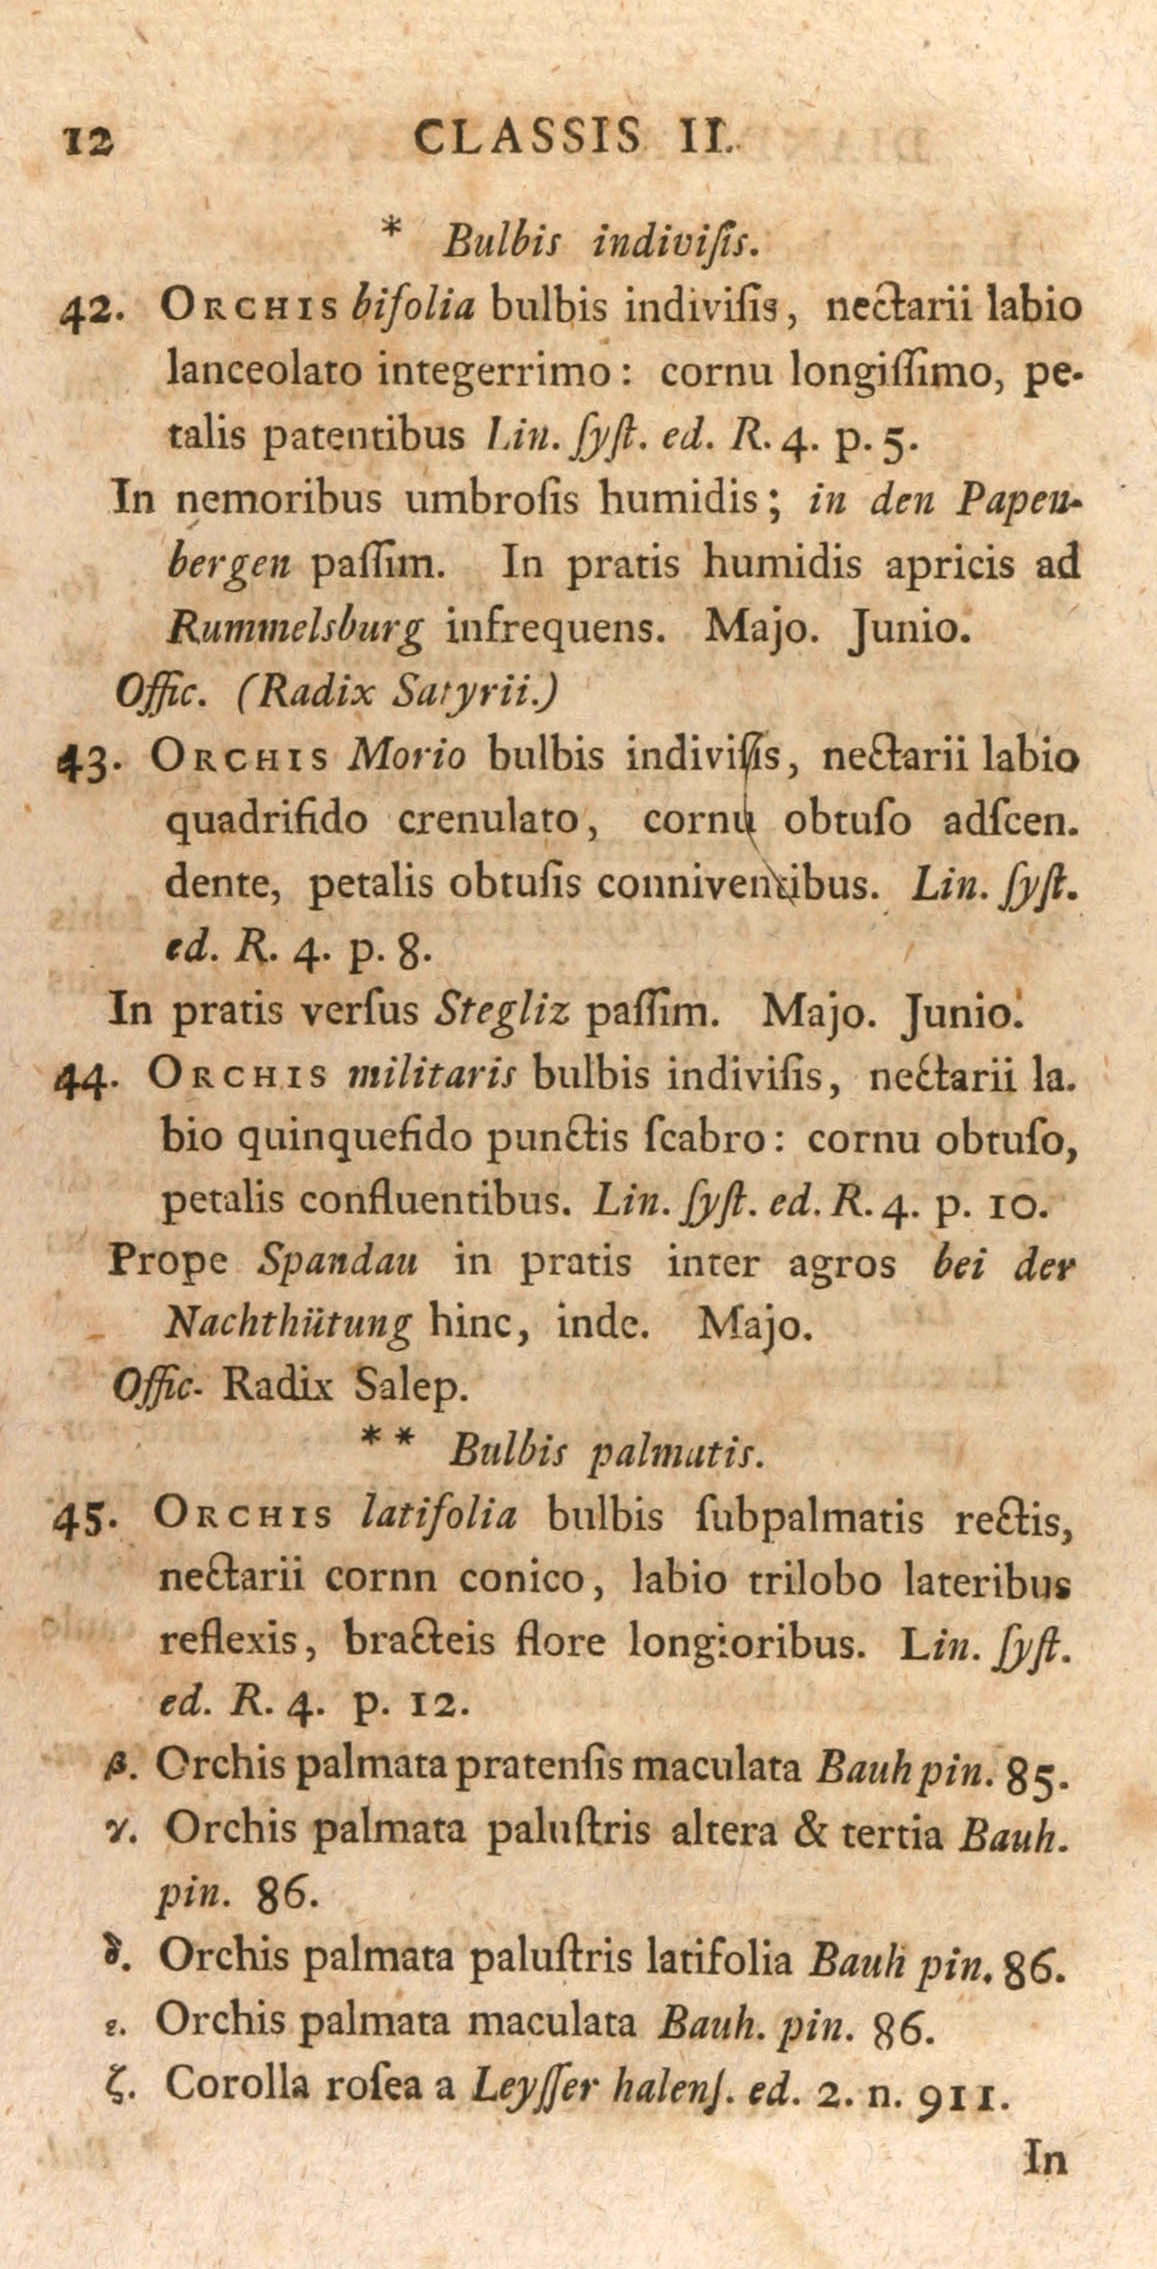 12 CLASSIS II.
* Bulbis indiviſis.
42. ORCHIS bifolia bulbis indiviſis, nectarii labio
lanceolato integerrimo: cornu longiſſimo, pe-
talis patentibus Lin. ſyſt. ed. R. 4. p. 5.
In nemoribus umbroſis humidis; in den Papen-
bergen paſſim. In pratis humidis apricis ad
Rummelsburg infrequens. Majo. Junio.
Offic. (Radix Satyrii.)
43. ORCHIS Morio bulbis indiviſis, nectarii labio
quadrifido crenulato, cornu obtuſo adſcen.
dente, petalis obtuſis conniventibus. Lin. ſyſt.
ed. R. 4. p. 8.
In pratis verſus Stegliz paſſim. Majo. Junio.
44. ORCHIS militaris bulbis indiviſis, nectarii la.
bio quinquefido punctis ſcabro: cornu obtuſo,
petalis confluentibus. Lin. ſyſt. ed. R. 4. p. 10.
Prope Spandau in pratis inter agros bei der
Nachthütung hinc, inde. Majo.
Offic. Radix Salep.
** Bulbis palmatis.
45. ORCHIS latifolia bulbis ſubpalmatis rectis,
nectarii cornn conico, labio trilobo lateribus
reflexis, bracteis flore longioribus. Lin. ſyſt.
ed. R. 4. p. 12.
β. Orchis palmata pratenſis maculata Bauh pin. 85.
γ. Orchis palmata paluſtris altera & tertia Bauh.
pin. 86.
δ. Orchis palmata paluſtris latifolia Bauh pin. 86.
ε. Orchis palmata maculata Bauh. pin. 86.
ζ. Corolla roſea a Leyſſer halenſ. ed. 2. n. 911.
In